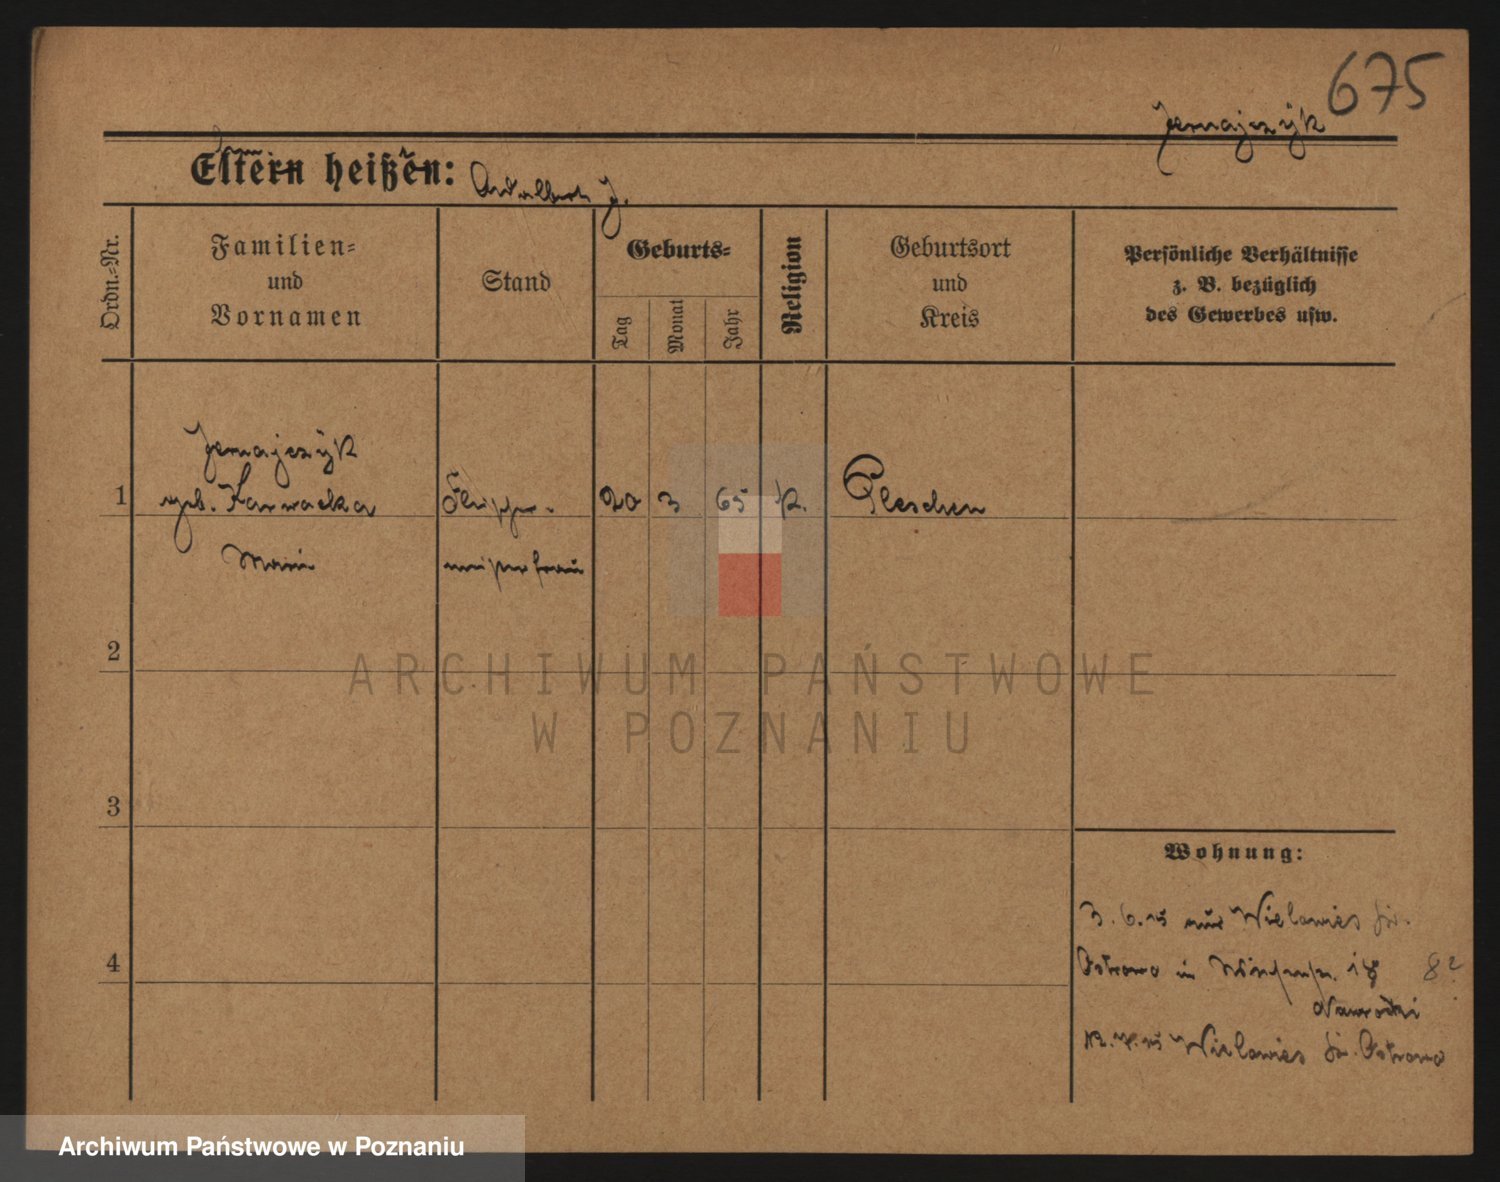 675
Jernajczÿk
Eltern heißen:
Adalbert J.
Ordn.-Nr.
Familien-
und
Vornamen
Stand
Geburts-
Tag
Monat
Jahr
Religion
Geburtsort
und
Kreis
Persönliche Verhältnisse
z. B. bezüglich
des Gewerbes usw.
Jernajczÿk
1 geb. Karwacka Fleischer- 20 3 65 k. Pleschen
Marie meisterfrau
2
ARCHIWUM PAŃSTWOWE
W POZNANIU
3
Wohnung:
3.6.15 aus Wielowies Kr.
4
Ostrowo in 18 82
Nawrocki
12.7.15 Wielowies Kr. Ostrowo
Archiwum Państwowe w Poznaniu